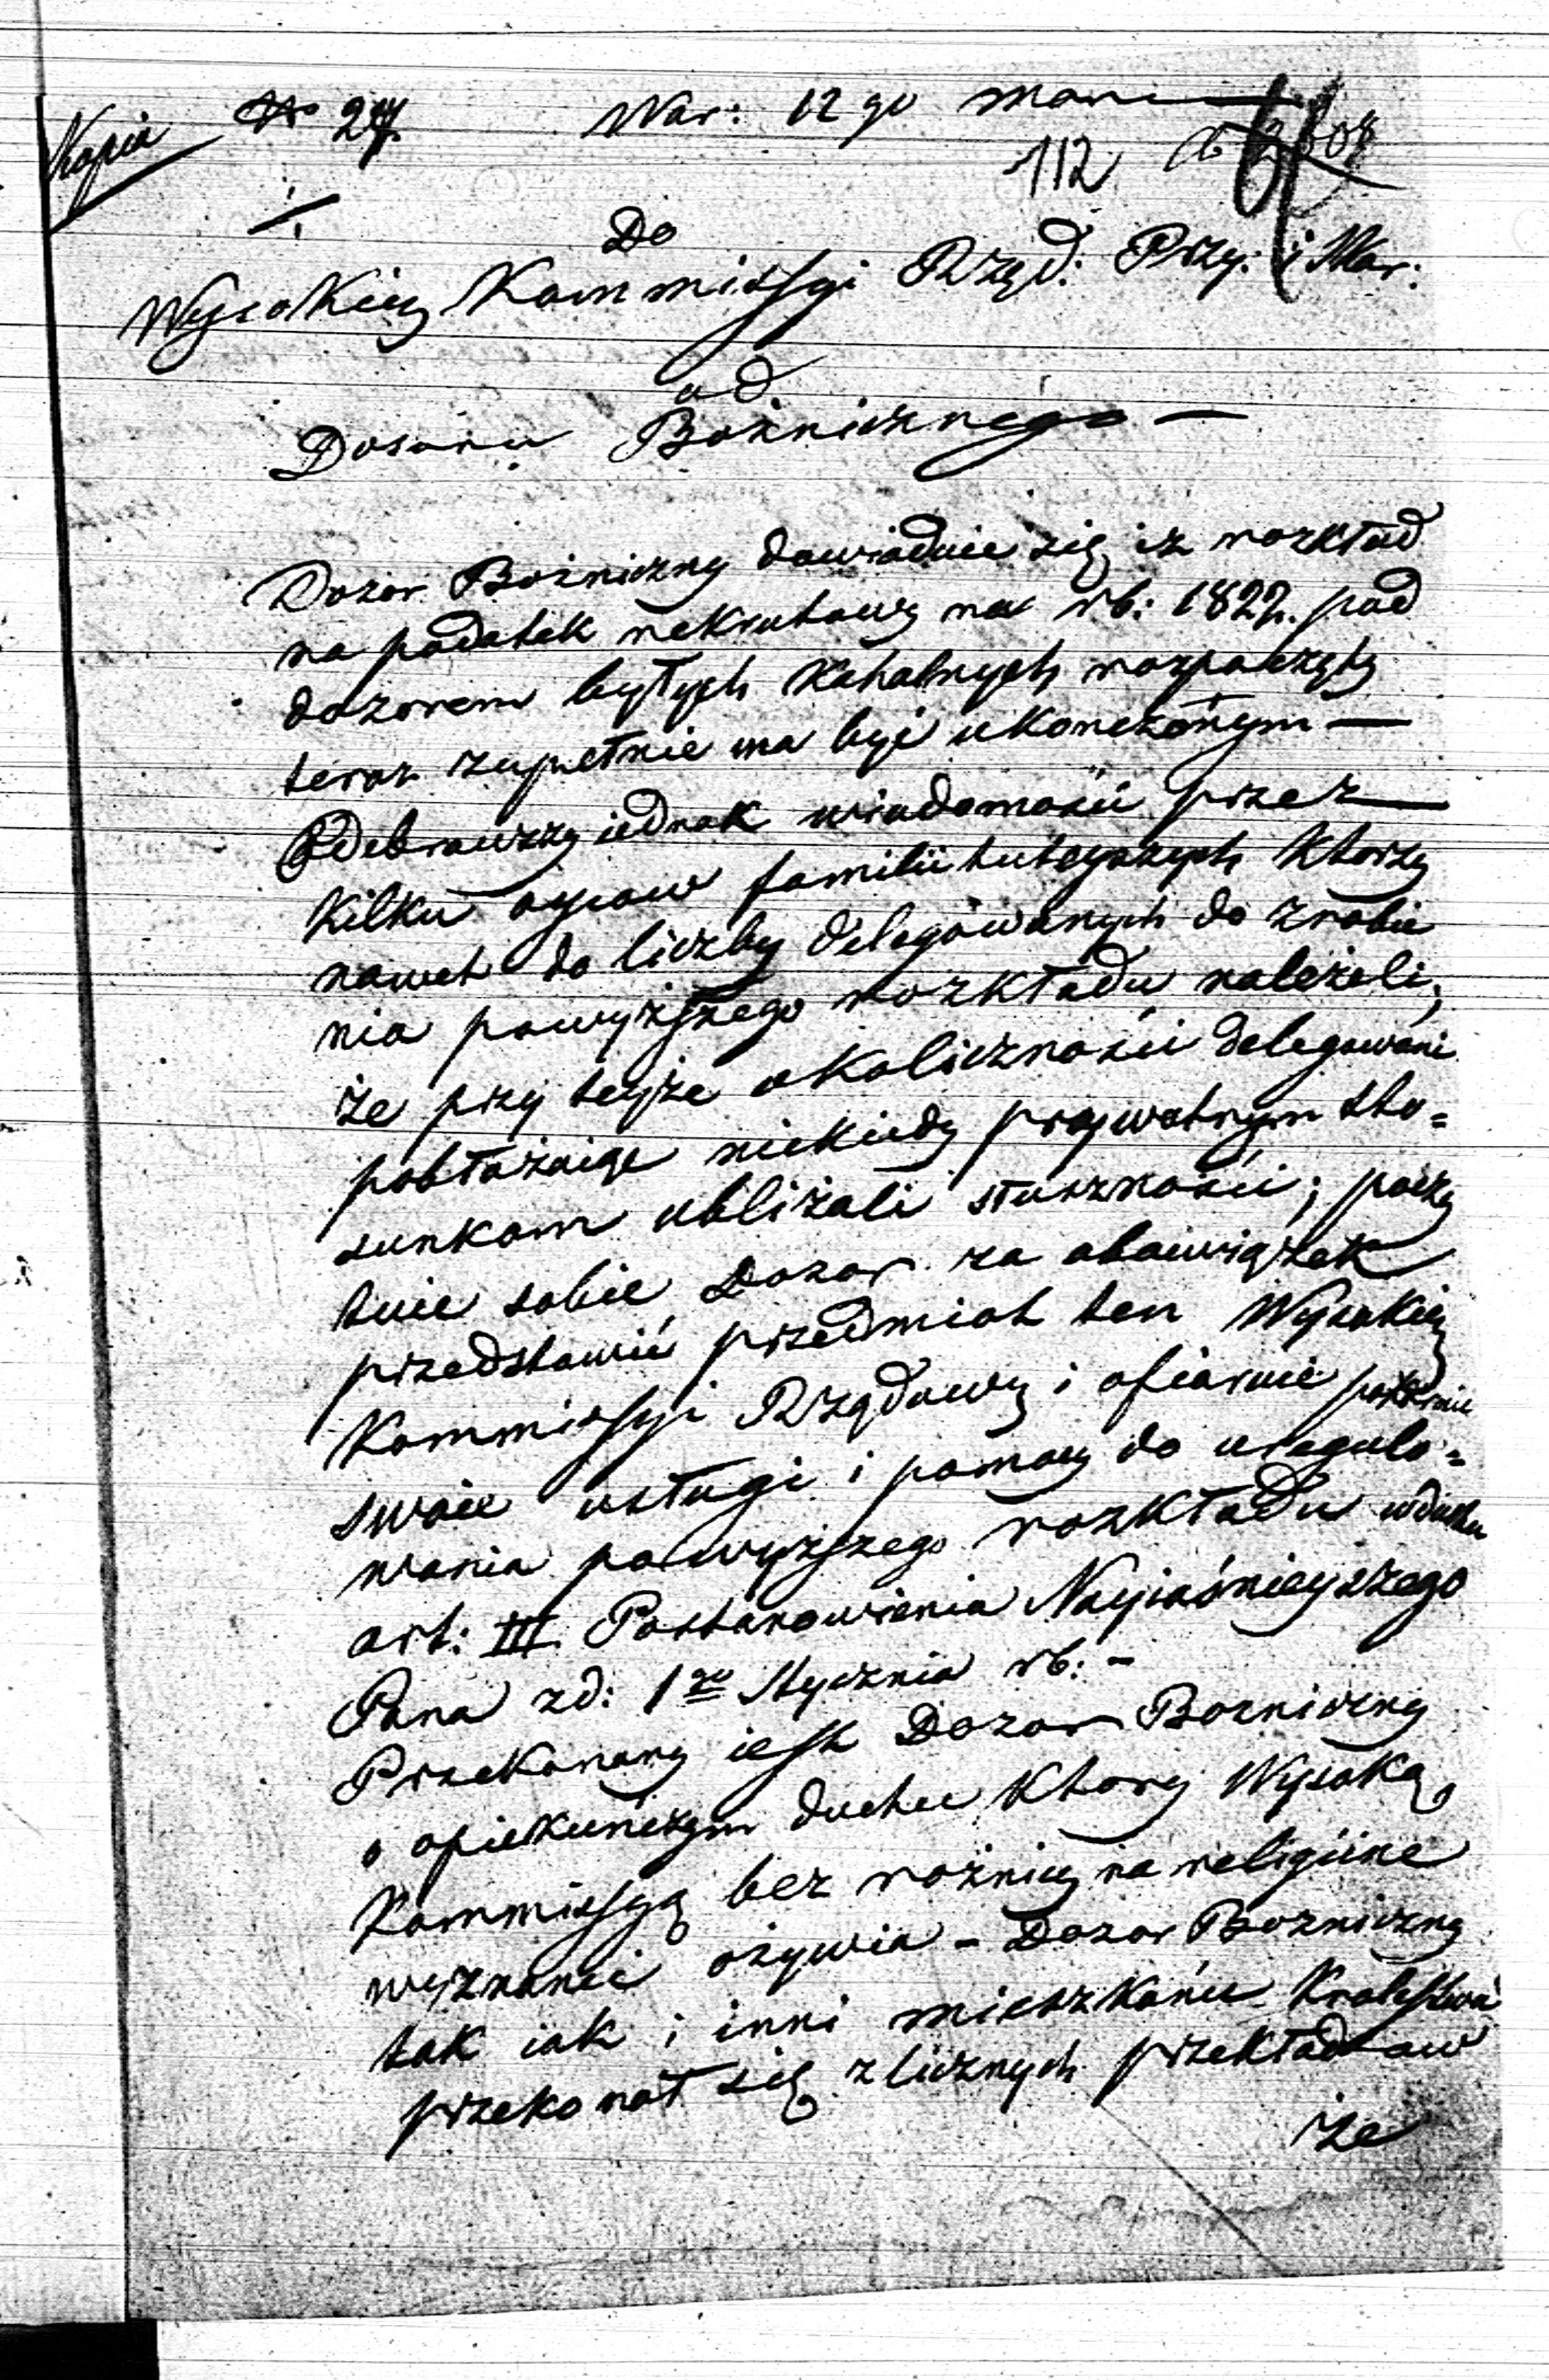 Kopia № 27. War: 12go Mar
112
Do
Wysokiey Kommissyi Rząd: Przy: i Skar:
od
Dozoru Bożnicznego —
Dozor Bożniczny dowiaduie się iż rozkład
na podatek rekrutowy na rb: 1822. pod
dozorem byłych Kahalnych rozpoczęty
teraz zupełnie ma być ukonczonym —
Odebrawszy iednak wiadomość przez
Kilku oycow familii tuteyszych Ktorzy
nawet do liczby delegowanych do zrobie
nia powyższego rozkładu należeli,
że przy teyże okoliczności delegowani
pobłażaiąc niekiedy prywatnym sto=
sunkom ubliżali słuszności; poczy
tuie sobie Dozor za obowiązek
przedstawić przedmiot ten Wysokiey
Kommissyi Rządowey i ofiaruie
swoie usługi i pomocy do uregulo=
wania powyższego rozkładu w duchu
art: III Postanowienia Nayiaśnieyszego
Pana zd: 1go Stycznia rb: –
Przekonany iest Dozor Bozniczny
o opiekunczym duchu Ktory Wysoką
Kommissyą bez rożnicy na religiine
wyznanie ożywia – Dozor Bozniczny
tak iak i inni mieszkańce Krolestwa
przekonał się z licznych przekładow
że